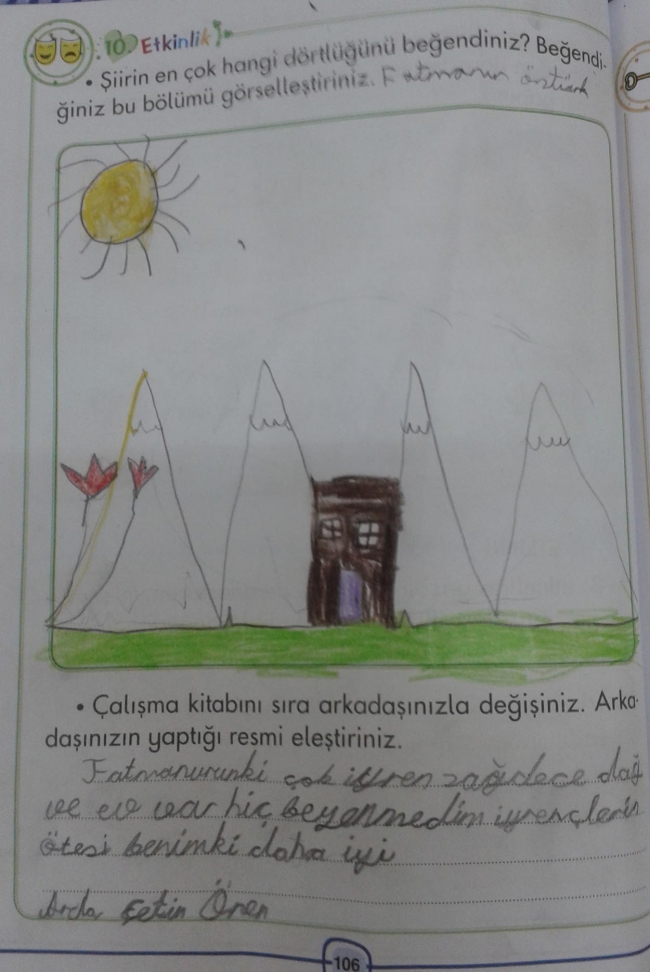 10. Etkinlik
• Şiirin en çok hangi dörtlüğünü beğendiniz? Beğendi-
ğiniz bu bölümü görselleştiriniz. Fatmanur öztürk
• Çalışma kitabını sıra arkadaşınızla değişiniz. Arka-
daşınızın yaptığı resmi eleştiriniz.
Fatmanurunki çok iyren zağdece dağ
ve ev var hiç beyenmedim iyrençlerin
ötesi benimki daha iyi
Arda Çetin Ören
106